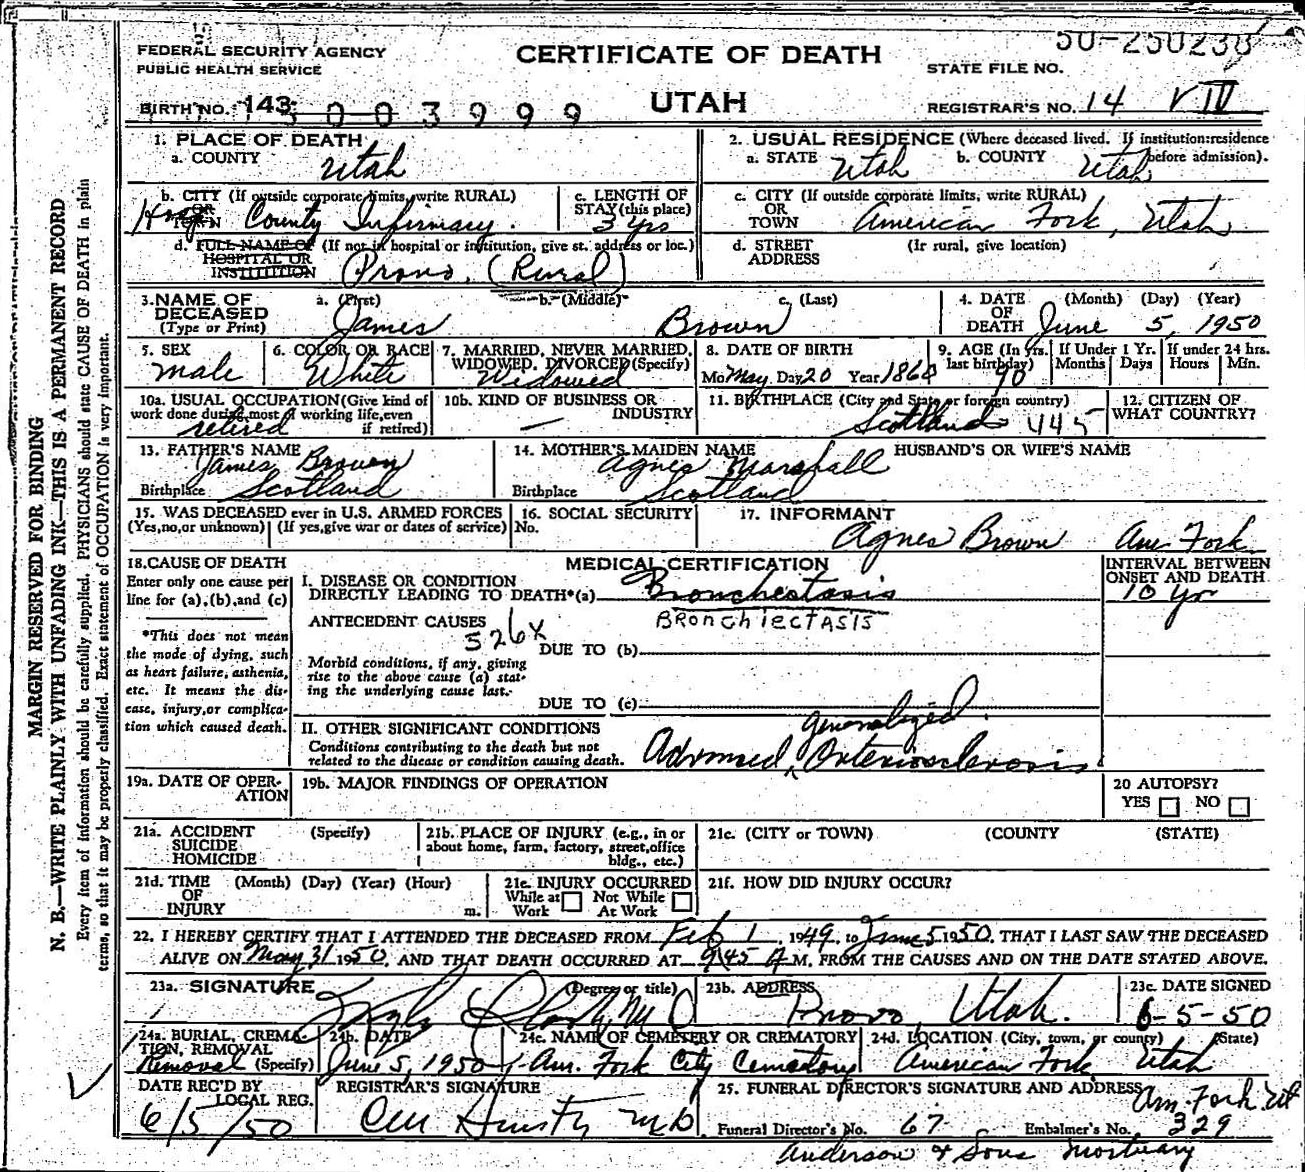 50-250238
FEDERAL SECURITY AGENCY
PUBLIC HEALTH SERVICE
CERTIFICATE OF DEATH
UTAH
STATE FILE NO.
BIRTH NO. 143
003999
REGISTRAR'S NO. 14 VIII
1. PLACE OF DEATH
a. COUNTY Utah
2. USUAL RESIDENCE (Where deceased lived. If institution:residence before admission).
a. STATE Utah b. COUNTY Utah
b. CITY (If outside corporate limits, write RURAL)
OR TOWN County Infirmary.
c. LENGTH OF STAY (this place) 3 yrs
c. CITY (If outside corporate limits, write RURAL)
OR TOWN American Fork, Utah
d. FULL NAME OF HOSPITAL OR INSTITUTION (If not in hospital or institution, give st. address or loc.)
Provo, (Rural)
d. STREET ADDRESS (If rural, give location)
3. NAME OF DECEASED (Type or Print)
a. (First) b. (Middle) c. (Last)
James Brown
4. DATE OF DEATH (Month) (Day) (Year)
June 5, 1950
5. SEX male
6. COLOR OR RACE White
7. MARRIED, NEVER MARRIED, WIDOWED, DIVORCED (Specify) Widowed
8. DATE OF BIRTH
Mo. May Day 20 Year 1860
9. AGE (In yrs. last birthday) 90
If Under 1 Yr. Months Days
If under 24 hrs. Hours Min.
10a. USUAL OCCUPATION (Give kind of work done during most of working life, even if retired) retired
10b. KIND OF BUSINESS OR INDUSTRY —
11. BIRTHPLACE (City and State or foreign country)
Scotland 445
12. CITIZEN OF WHAT COUNTRY?
13. FATHER'S NAME
James Brown
Birthplace Scotland
14. MOTHER'S MAIDEN NAME
Agnes Marshall
Birthplace Scotland
HUSBAND'S OR WIFE'S NAME
15. WAS DECEASED ever in U.S. ARMED FORCES
(Yes, no, or unknown) (If yes, give war or dates of service)
16. SOCIAL SECURITY No.
17. INFORMANT
Agnes Brown Am. Fork
18. CAUSE OF DEATH
Enter only one cause per line for (a), (b), and (c)
*This does not mean the mode of dying, such as heart failure, asthenia, etc. It means the disease, injury, or complication which caused death.
MEDICAL CERTIFICATION
INTERVAL BETWEEN ONSET AND DEATH
I. DISEASE OR CONDITION DIRECTLY LEADING TO DEATH*(a) Bronchestasis
10 yr
BRONCHIECTASIS
ANTECEDENT CAUSES
526X
DUE TO (b)
Morbid conditions, if any, giving rise to the above cause (a) stating the underlying cause last.
DUE TO (c)
II. OTHER SIGNIFICANT CONDITIONS
Conditions contributing to the death but not related to the disease or condition causing death.
generalized
Advanced Arteriosclerosis
19a. DATE OF OPERATION
19b. MAJOR FINDINGS OF OPERATION
20 AUTOPSY?
YES NO
21a. ACCIDENT SUICIDE HOMICIDE (Specify)
21b. PLACE OF INJURY (e.g., in or about home, farm, factory, street, office bldg., etc.)
21c. (CITY or TOWN) (COUNTY (STATE)
21d. TIME OF INJURY (Month) (Day) (Year) (Hour) m.
21e. INJURY OCCURRED
While at Work Not While At Work
21f. HOW DID INJURY OCCUR?
22. I HEREBY CERTIFY THAT I ATTENDED THE DECEASED FROM Feb 1, 1949, to June 5 1950, THAT I LAST SAW THE DECEASED
ALIVE ON May 31 1950, AND THAT DEATH OCCURRED AT 9:45 A M. FROM THE CAUSES AND ON THE DATE STATED ABOVE.
23a. SIGNATURE (Degree or title)
23b. ADDRESS
Provo, Utah.
23c. DATE SIGNED
6-5-50
24a. BURIAL, CREMATION, REMOVAL (Specify) Removal
24b. DATE June 5, 1950
24c. NAME OF CEMETERY OR CREMATORY
Am. Fork City Cemetery
24d. LOCATION (City, town, or county) (State)
American Fork, Utah
DATE REC'D BY LOCAL REG.
6/5/50
REGISTRAR'S SIGNATURE
25. FUNERAL DIRECTOR'S SIGNATURE AND ADDRESS
Am. Fork Ut
Funeral Director's No. 67
Embalmer's No. 329
Anderson & Sons Mortuary
MARGIN RESERVED FOR BINDING
N. B.—WRITE PLAINLY WITH UNFADING INK—THIS IS A PERMANENT RECORD
Every item of information should be carefully supplied. PHYSICIANS should state CAUSE OF DEATH in plain
terms, so that it may be properly classified. Exact statement of OCCUPATION is very important.